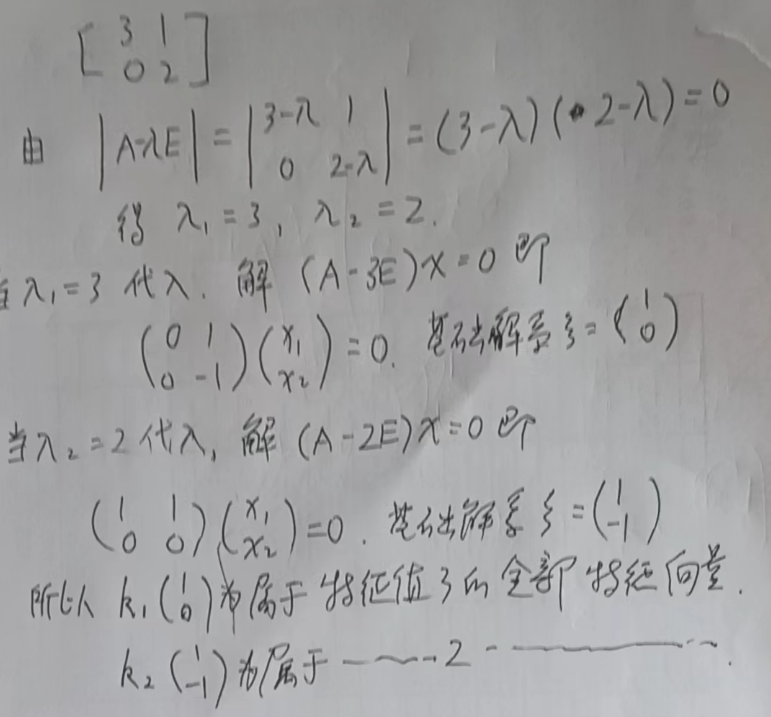 [3 1
0 2]
由 |A-λE| = |3-λ 1
0 2-λ| = (3-λ)(2-λ)=0
得 λ₁=3, λ₂=2.
当λ₁=3 代入. 解 (A-3E)x=0 即
(0 1
0 -1)(x₁
x₂)=0. 基础解系ξ=(1
0)
当λ₂=2代入, 解 (A-2E)x=0 即
(1 1
0 0)(x₁
x₂)=0. 基础解系ξ=(1
-1)
所以 k₁(1
0)为属于特征值3的全部特征向量.
k₂(1
-1)为属于——2——.